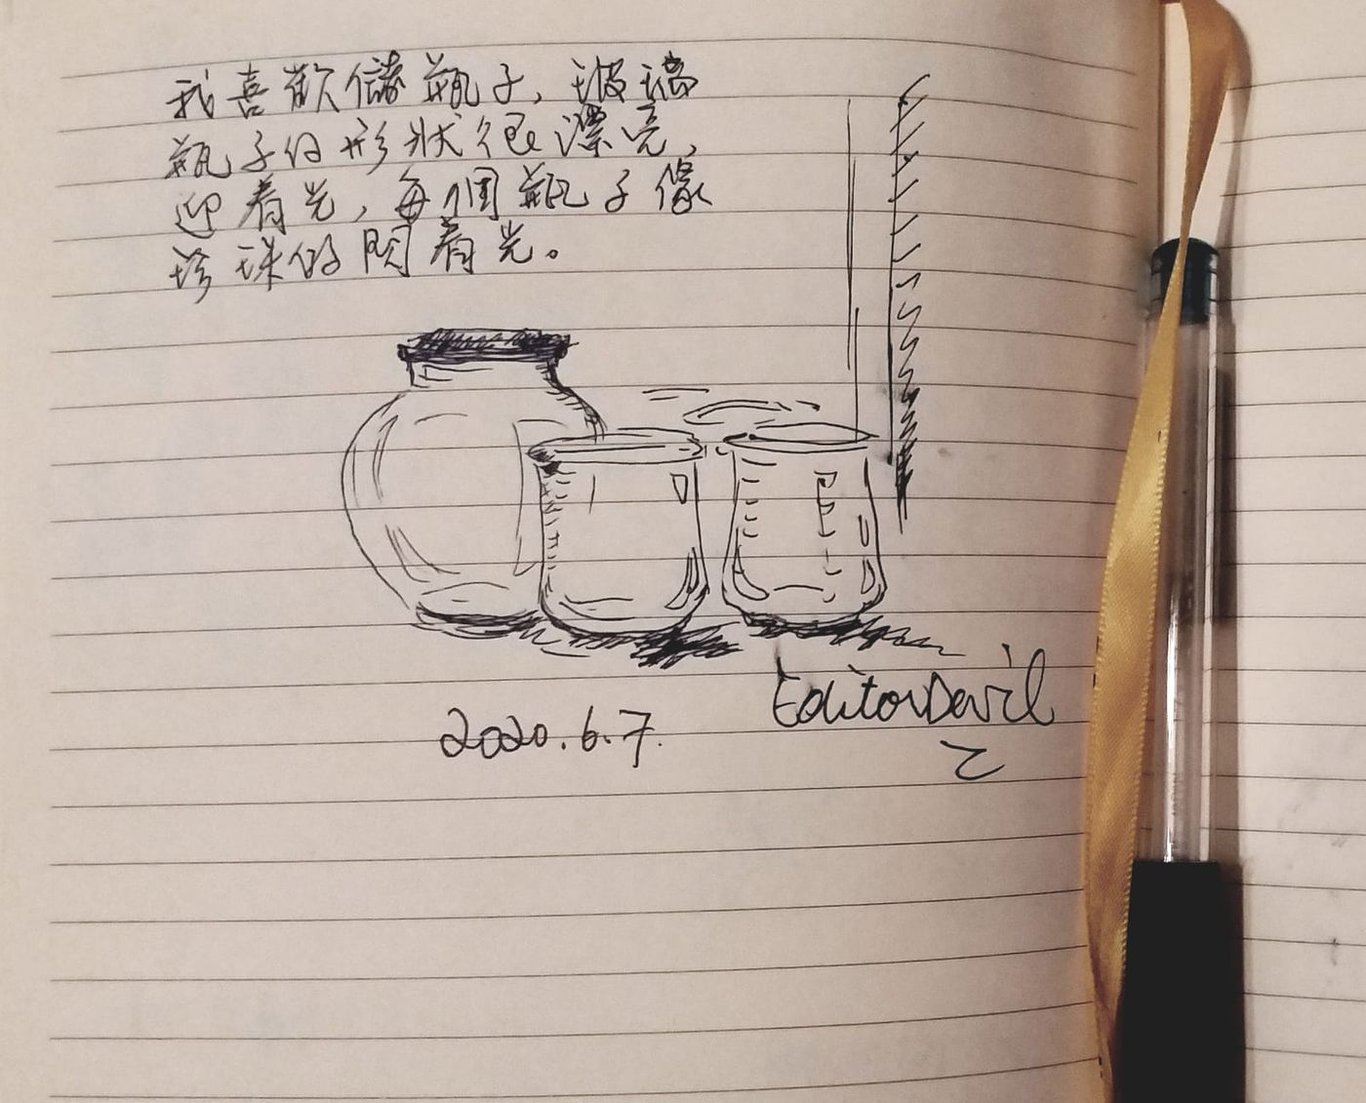 我喜歡儲瓶子，玻璃
瓶子的形狀很漂亮，
迎着光，每個瓶子像
珍珠的閃着光。
2020.6.7.
EditorDevil